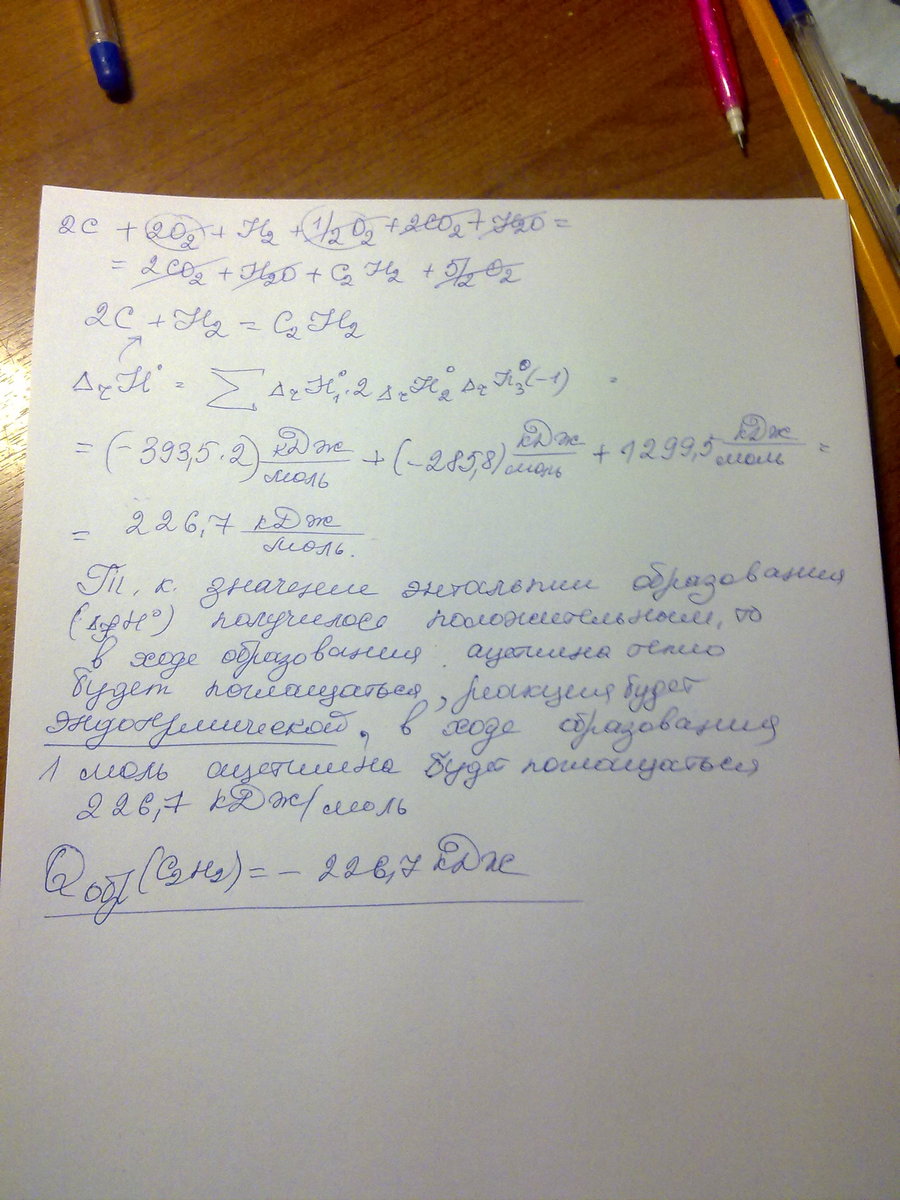 2C + 2O₂ + H₂ + 1/2O₂ + 2CO₂ + H₂O =
= 2CO₂ + H₂O + C₂H₂ + 5/2 O₂
2C + H₂ = C₂H₂
ΔrH° = ∑ ΔrH₁°·2 ΔrH₂° ΔrH₃°(-1) =
= (-393,5·2) кДж/моль + (-285,8) кДж/моль + 1299,5 кДж/моль =
= 226,7 кДж/моль.
Т. к. значение энтальпии образования
(ΔfH°) получилось положительным, то
в ходе образования ацетилена тепло
будет поглощаться, реакция будет
эндотермической, в ходе образования
1 моль ацетилена будет поглощаться
226,7 кДж/моль
Qобр(C₂H₂) = - 226,7 кДж